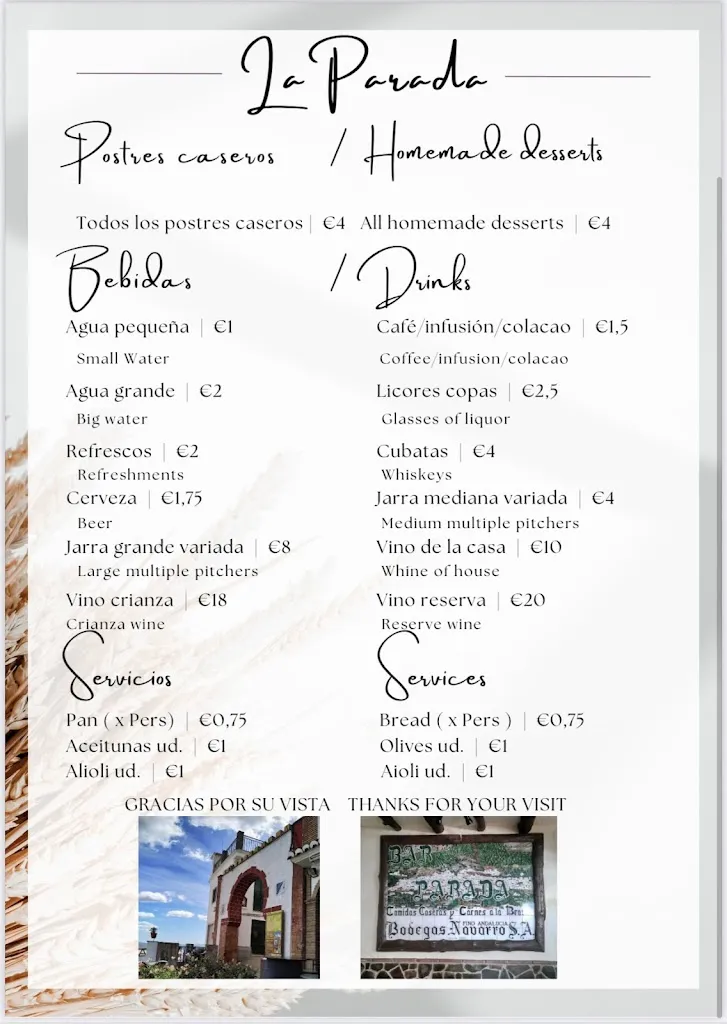 La Parada
Postres caseros / Homemade desserts
Todos los postres caseros | €4 All homemade desserts | €4
Bebidas / Drinks
Agua pequeña | €1
Small Water
Agua grande | €2
Big water
Refrescos | €2
Refreshments
Cerveza | €1,75
Beer
Jarra grande variada | €8
Large multiple pitchers
Vino crianza | €18
Crianza wine
Café/infusión/colacao | €1,5
Coffee/infusion/colacao
Licores copas | €2,5
Glasses of liquor
Cubatas | €4
Whiskeys
Jarra mediana variada | €4
Medium multiple pitchers
Vino de la casa | €10
Whine of house
Vino reserva | €20
Reserve wine
Servicios
Pan ( x Pers) | €0,75
Aceitunas ud. | €1
Alioli ud. | €1
Services
Bread ( x Pers ) | €0,75
Olives ud. | €1
Aioli ud. | €1
GRACIAS POR SU VISTA THANKS FOR YOUR VISIT
BAR
PARADA
Comidas Caseras y Carnes a la
Bodegas Navarro S.A.